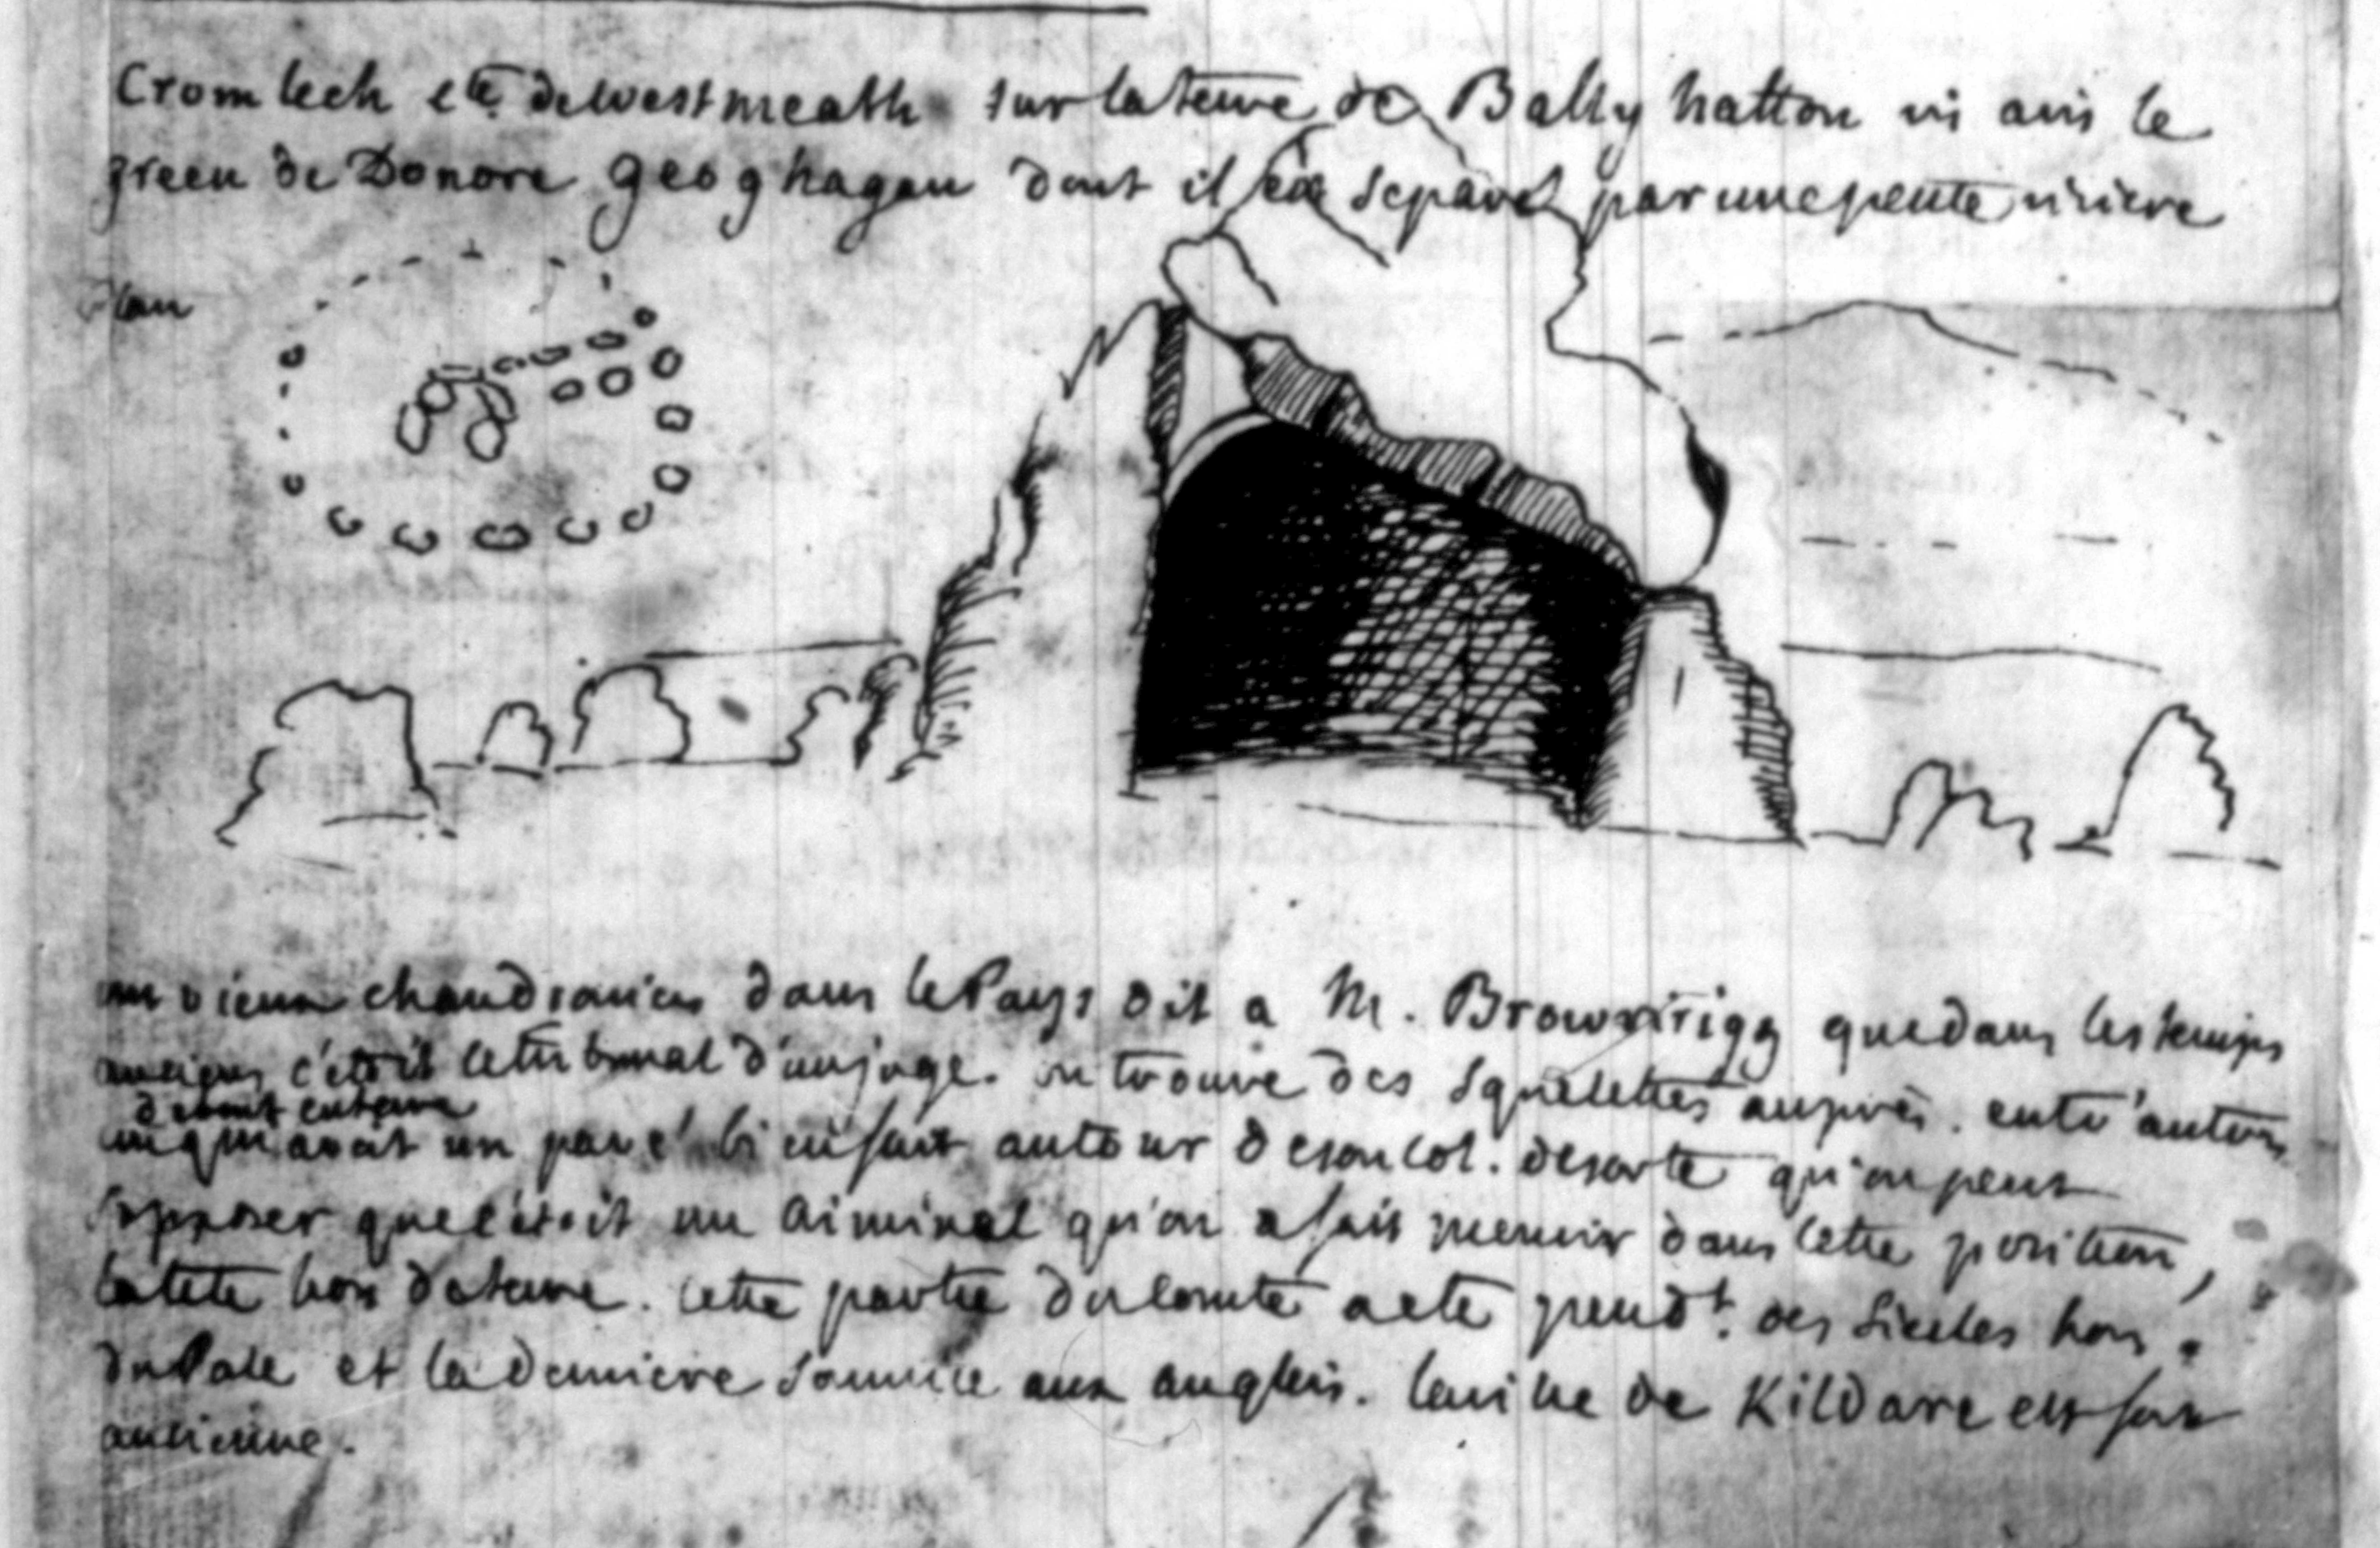 Cromlech cté de westmeath sur la terre de Ballyhatton vis avis le
green de Donore geoghagan dont il est separé par une petite riviere
Plan
un vieux chaudronier dans le Pays dit a M. Brownrigg que dans les temps
anciens c'étoit le tribunal d'un juge. on trouve des squelettes auprès. entr'autres
debout enterré
un qui avoit un pavé bien fait autour de son col. de sorte qu'on peut
supposer que c'étoit un criminel qu'on a fait mourir dans cette position,
la tete hors de terre. cette partie du Comté a eté pendt. des Siecles hors
du Pale et la derniere soumise aux anglois. la ville de Kildare est fort
ancienne.